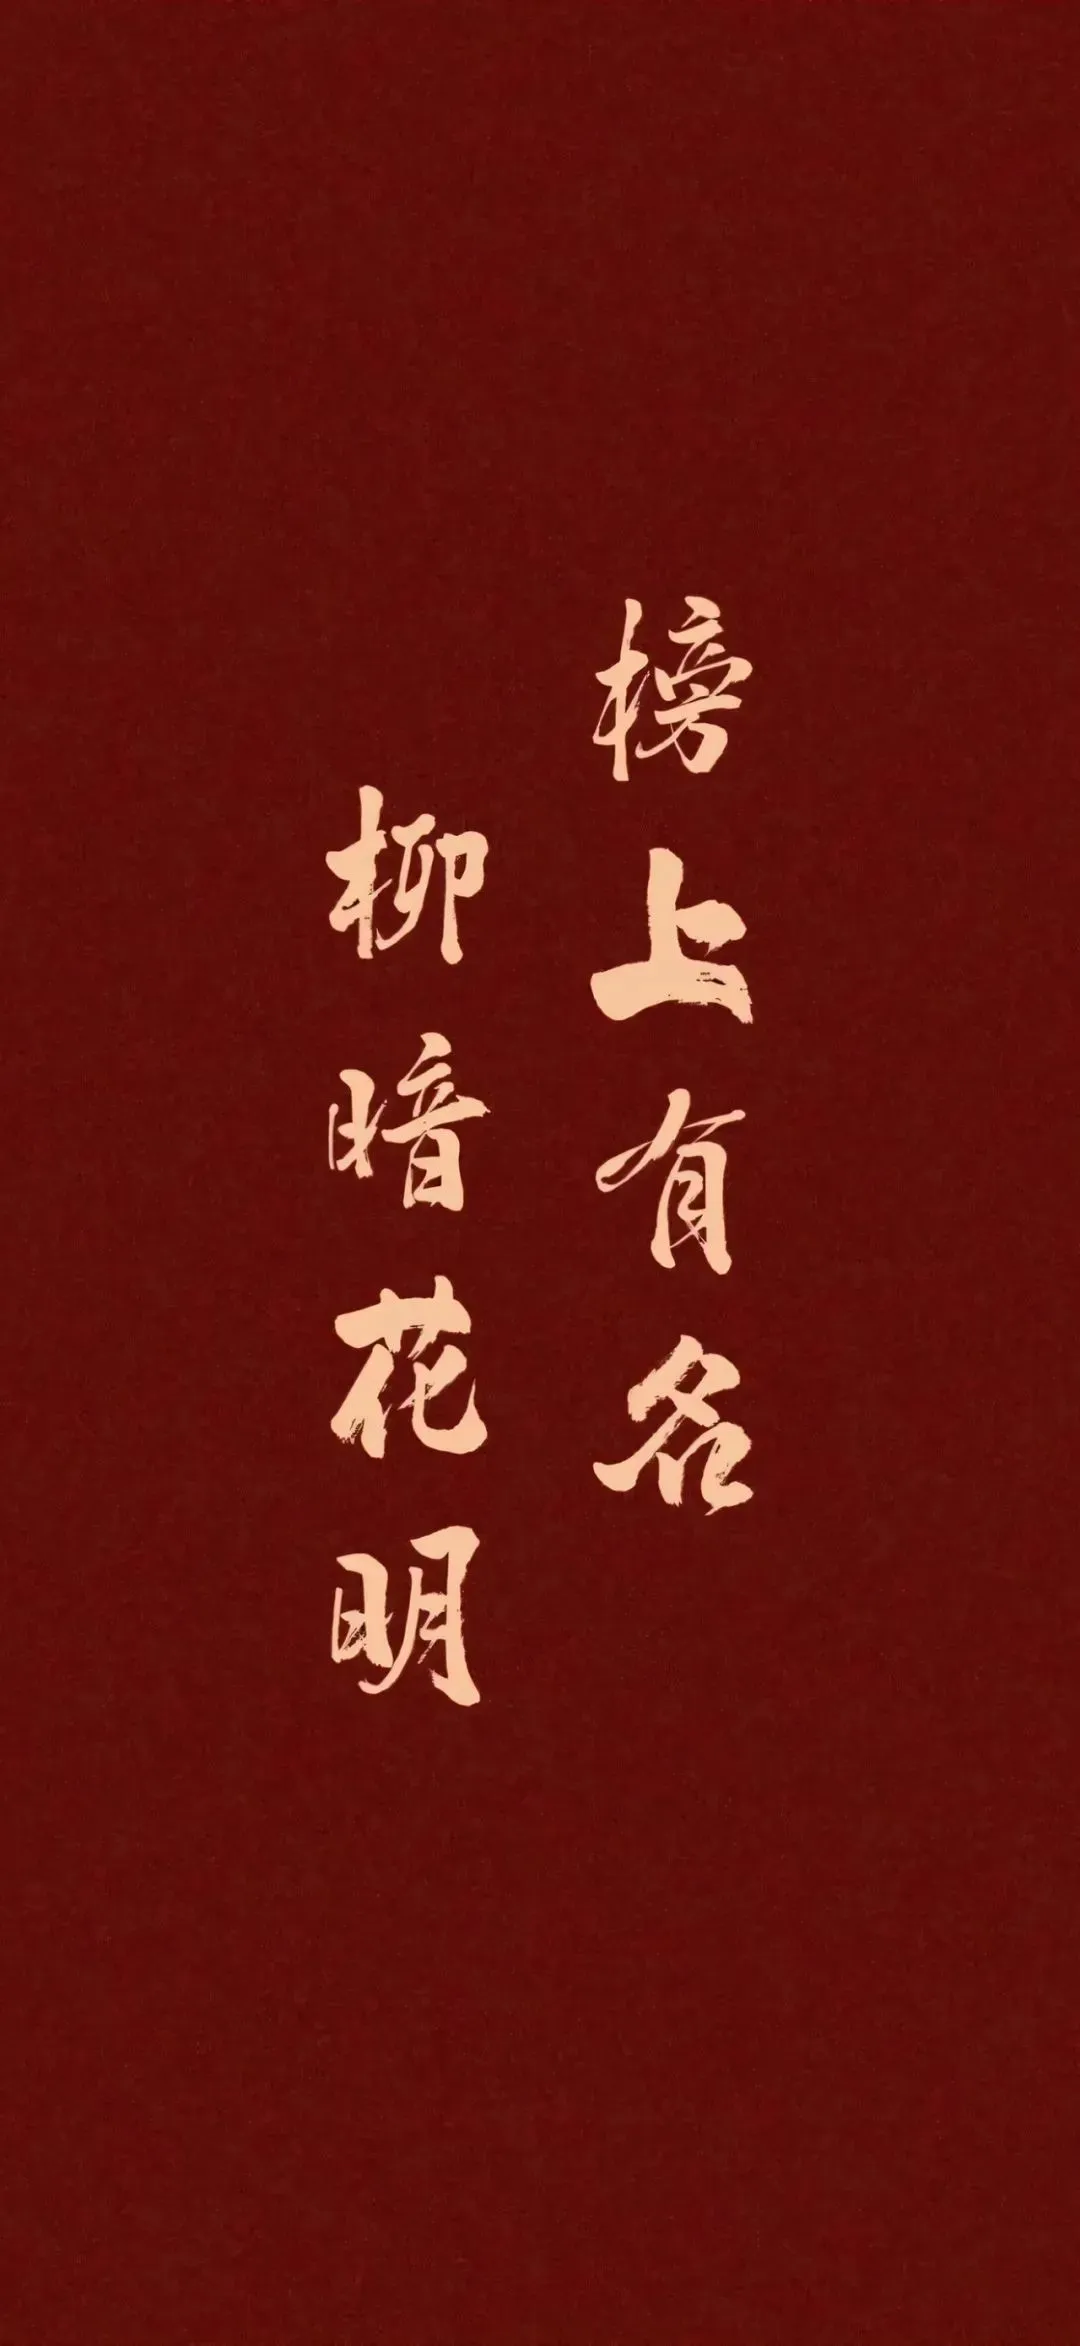 榜上有名
柳暗花明